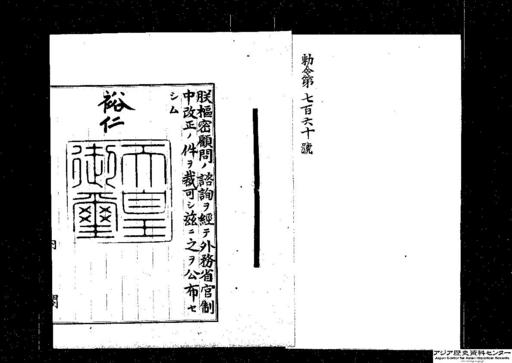 勅令第七百六十號
朕樞密顧問ノ諮詢ヲ經テ外務省官制
中改正ノ件ヲ裁可シ茲ニ之ヲ公布セ
シム
裕仁
天皇
御璽
内
閣
アジア歴史資料センター
Japan Center for Asian Historical Records